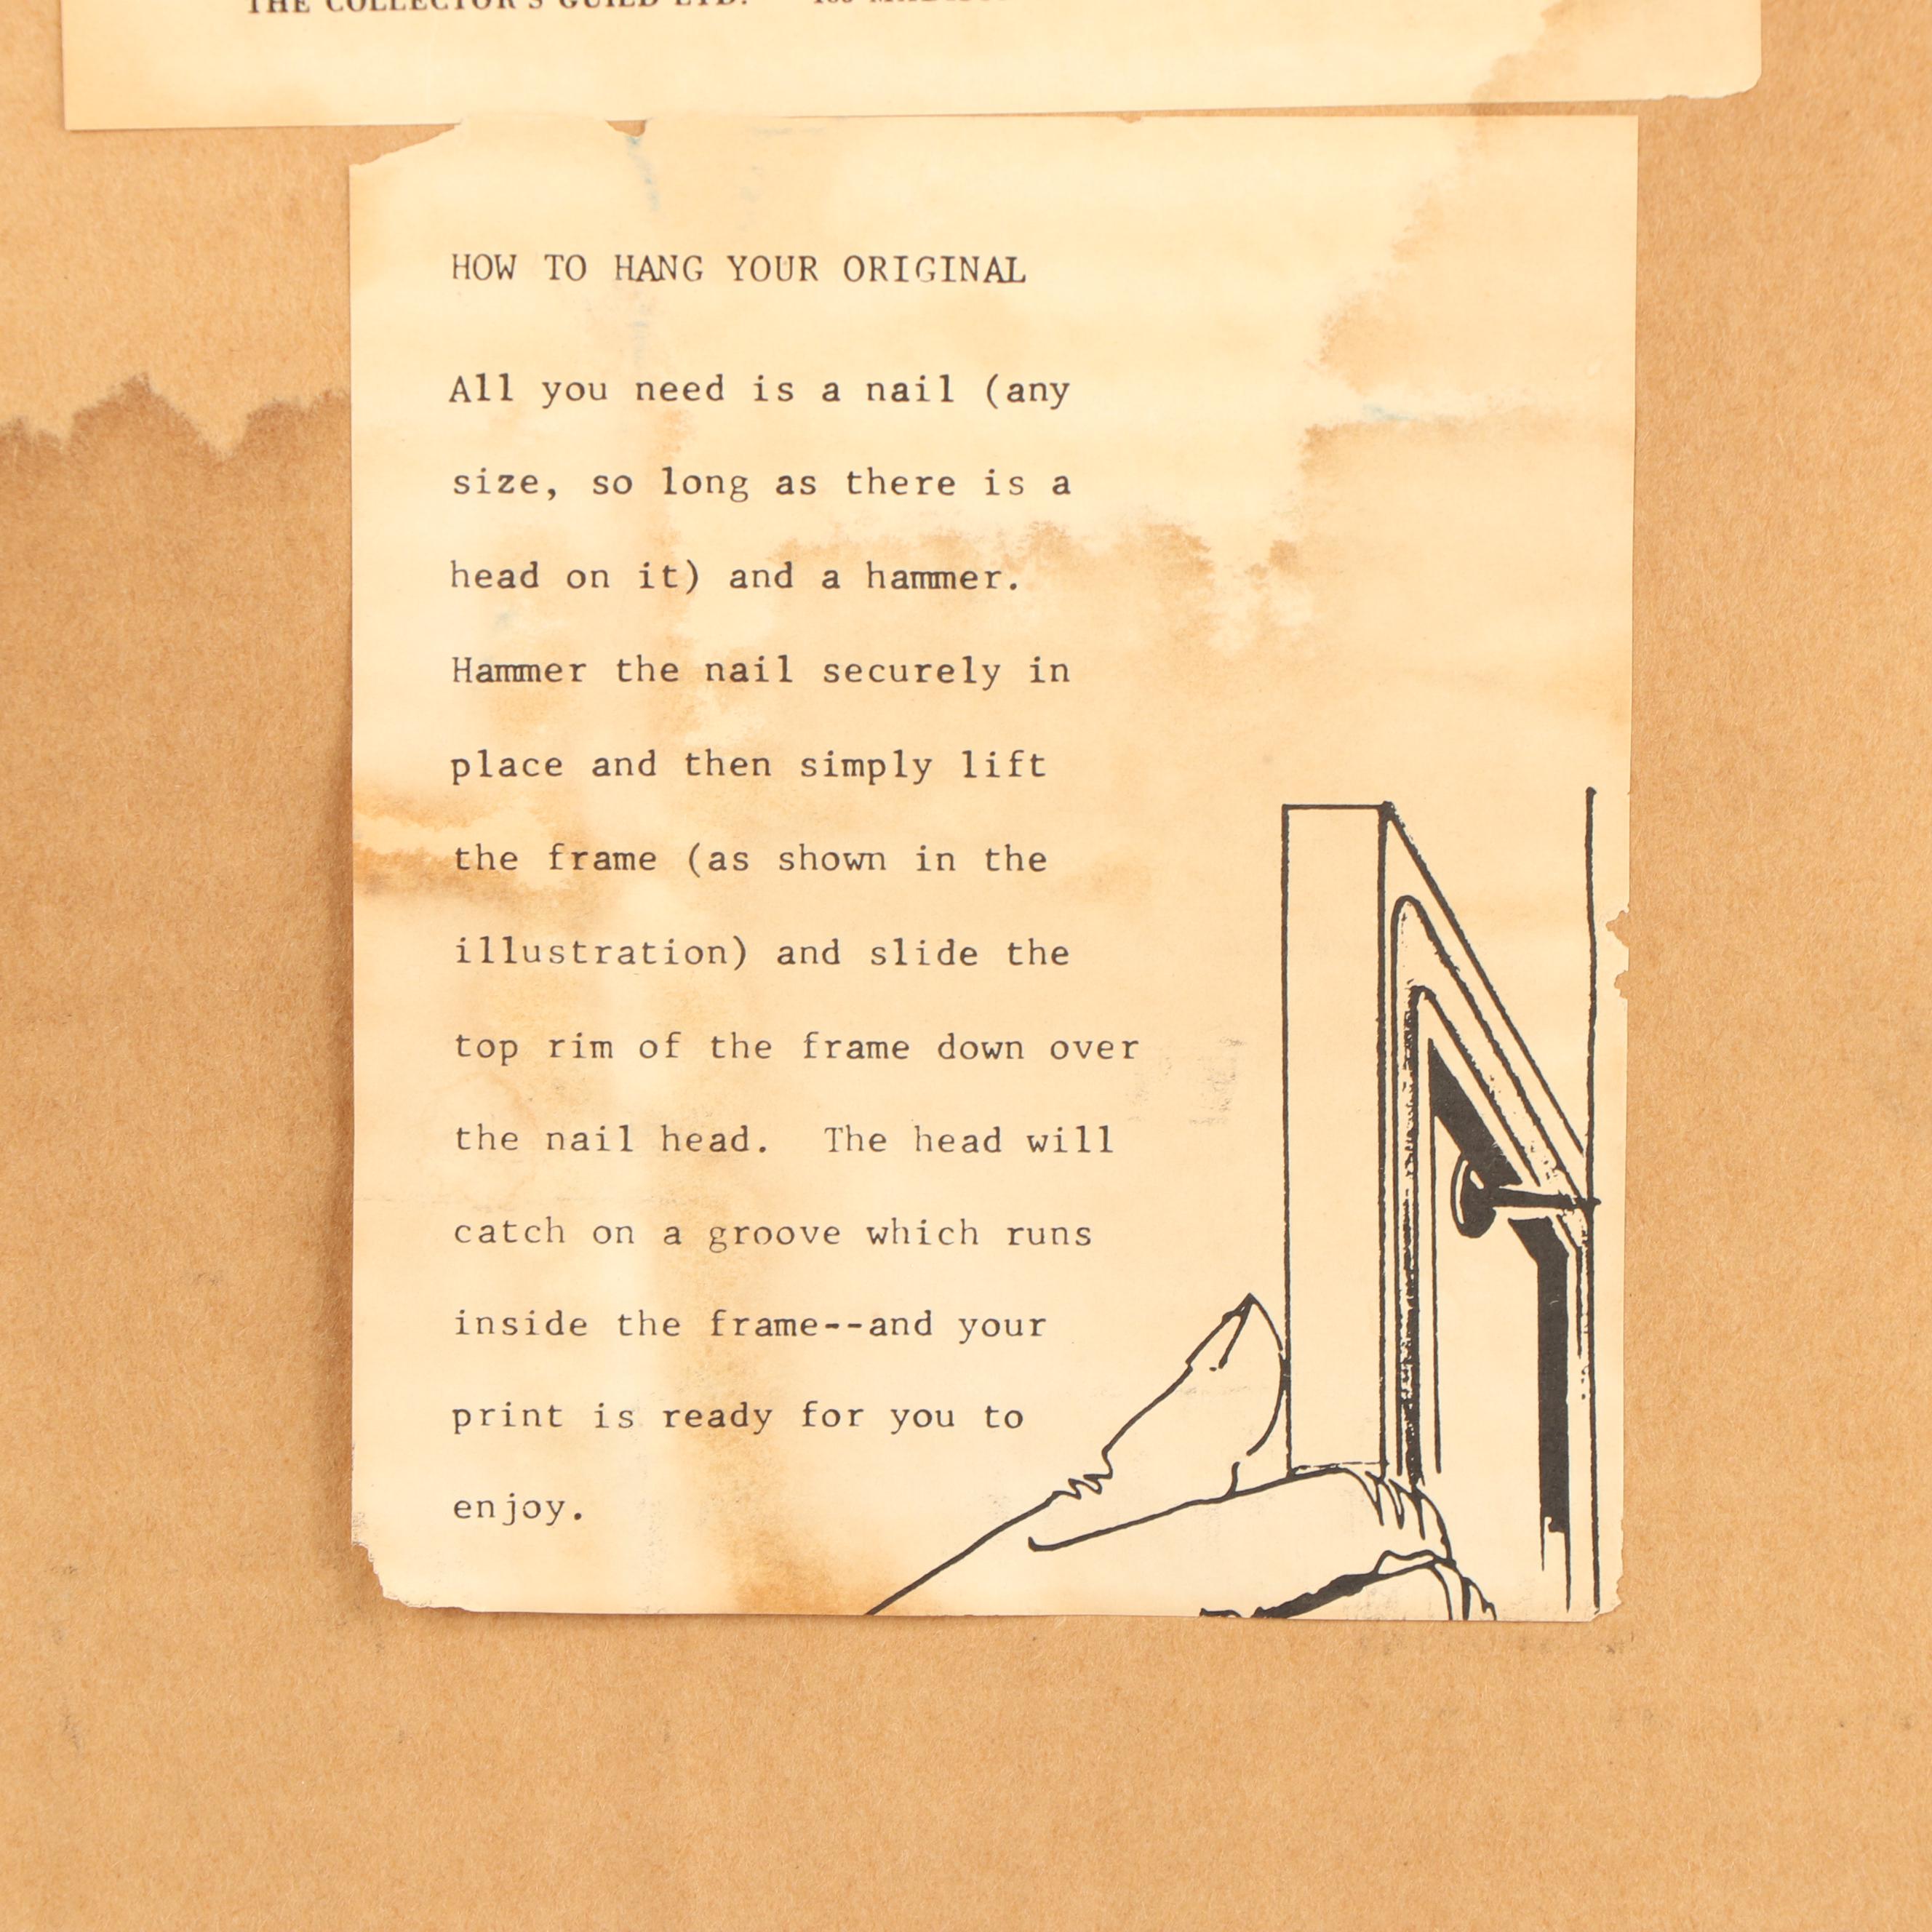 THE COLLECTOR'S GUILD LTD.
HOW TO HANG YOUR ORIGINAL
All you need is a nail (any
size, so long as there is a
head on it) and a hammer.
Hammer the nail securely in
place and then simply lift
the frame (as shown in the
illustration) and slide the
top rim of the frame down over
the nail head.  The head will
catch on a groove which runs
inside the frame--and your
print is ready for you to
enjoy.